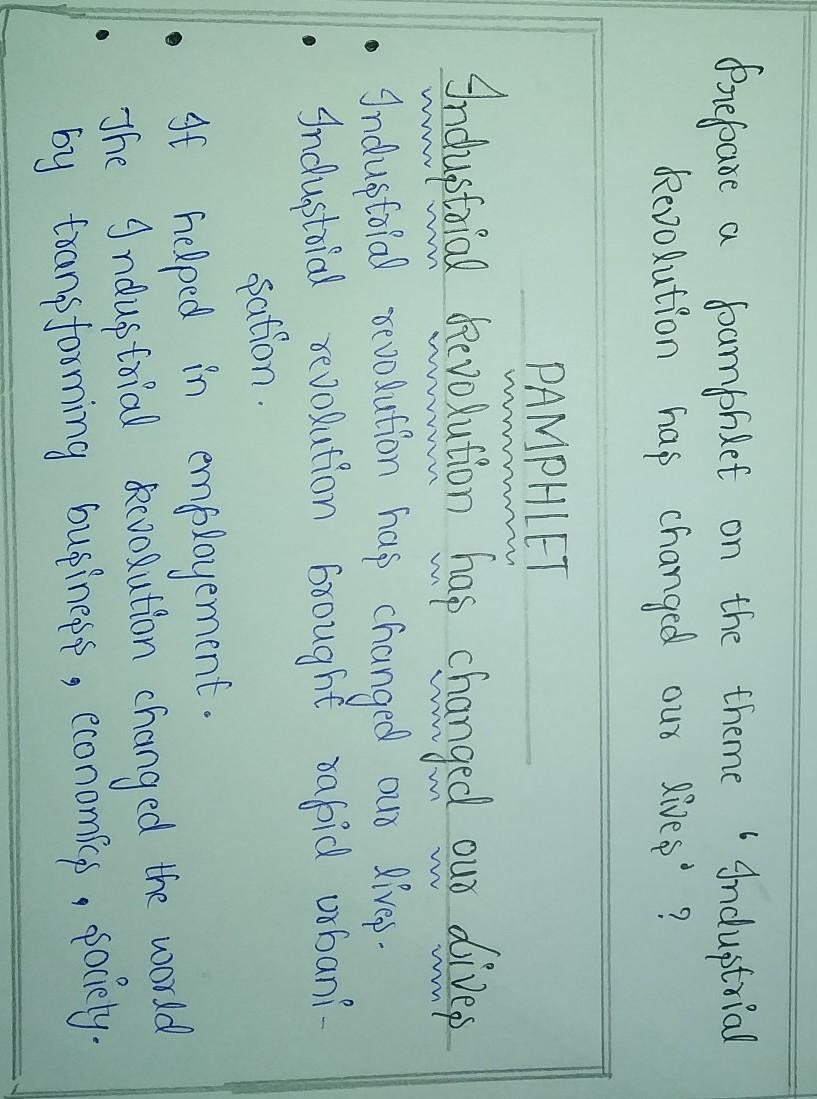 Prepare a pamphlet on the theme 'Industrial
Revolution has changed our lives' ?
PAMPHLET
Industrial Revolution has changed our Lives
• Industrial revolution has changed our lives.
• Industrial revolution brought rapid urbani-
sation.
• It helped in employement.
• The Industrial Revolution changed the world
by transforming business, economics, society.